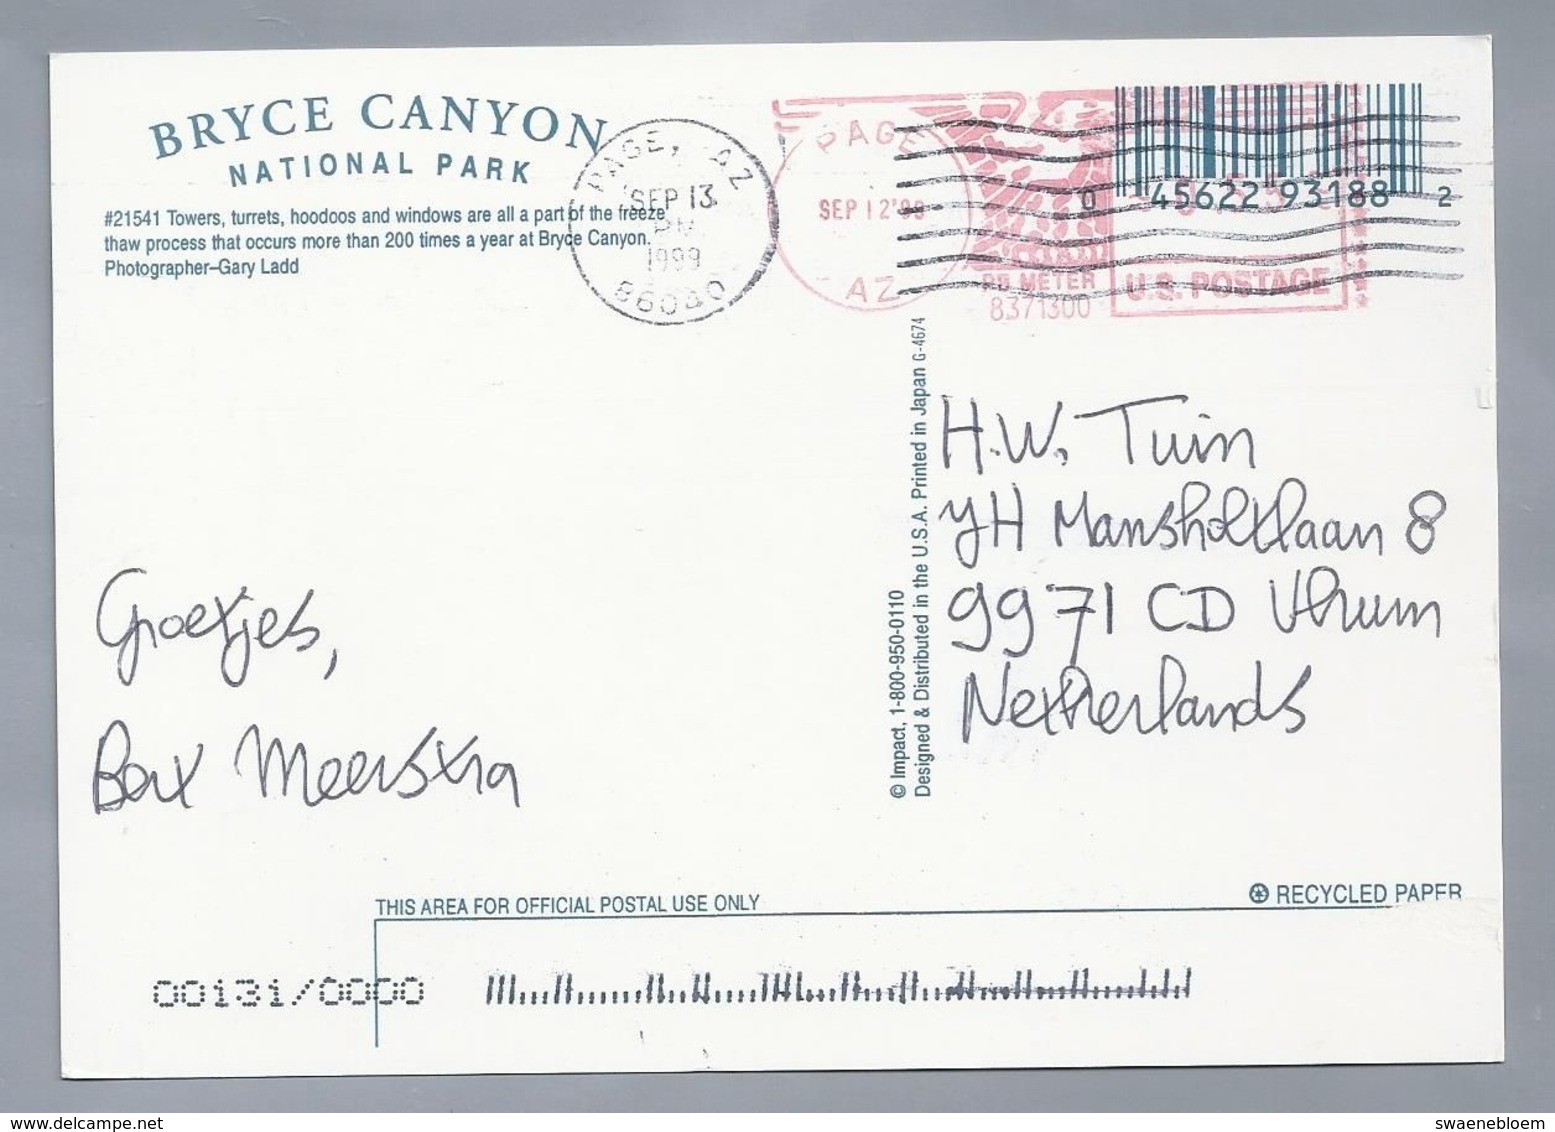 BRYCE CANYON
NATIONAL PARK
#21541 Towers, turrets, hoodoos and windows are all a part of the freeze
thaw process that occurs more than 200 times a year at Bryce Canyon.
Photographer–Gary Ladd
PAGE, AZ
SEP 13
PM
1999
86040
PAGE
SEP 12'99
AZ
PB METER
8371300
U.S. POSTAGE
0 45622 93188 2
© Impact, 1-800-950-0110
Designed & Distributed in the U.S.A. Printed in Japan G-4674
H.W. Tuin
YH Mansholtlaan 8
9971 CD Ulrum
Netherlands
Groetjes,
Bert Meerstra
THIS AREA FOR OFFICIAL POSTAL USE ONLY
RECYCLED PAPER
00131/0000
www.delcampe.net
swaenebloem